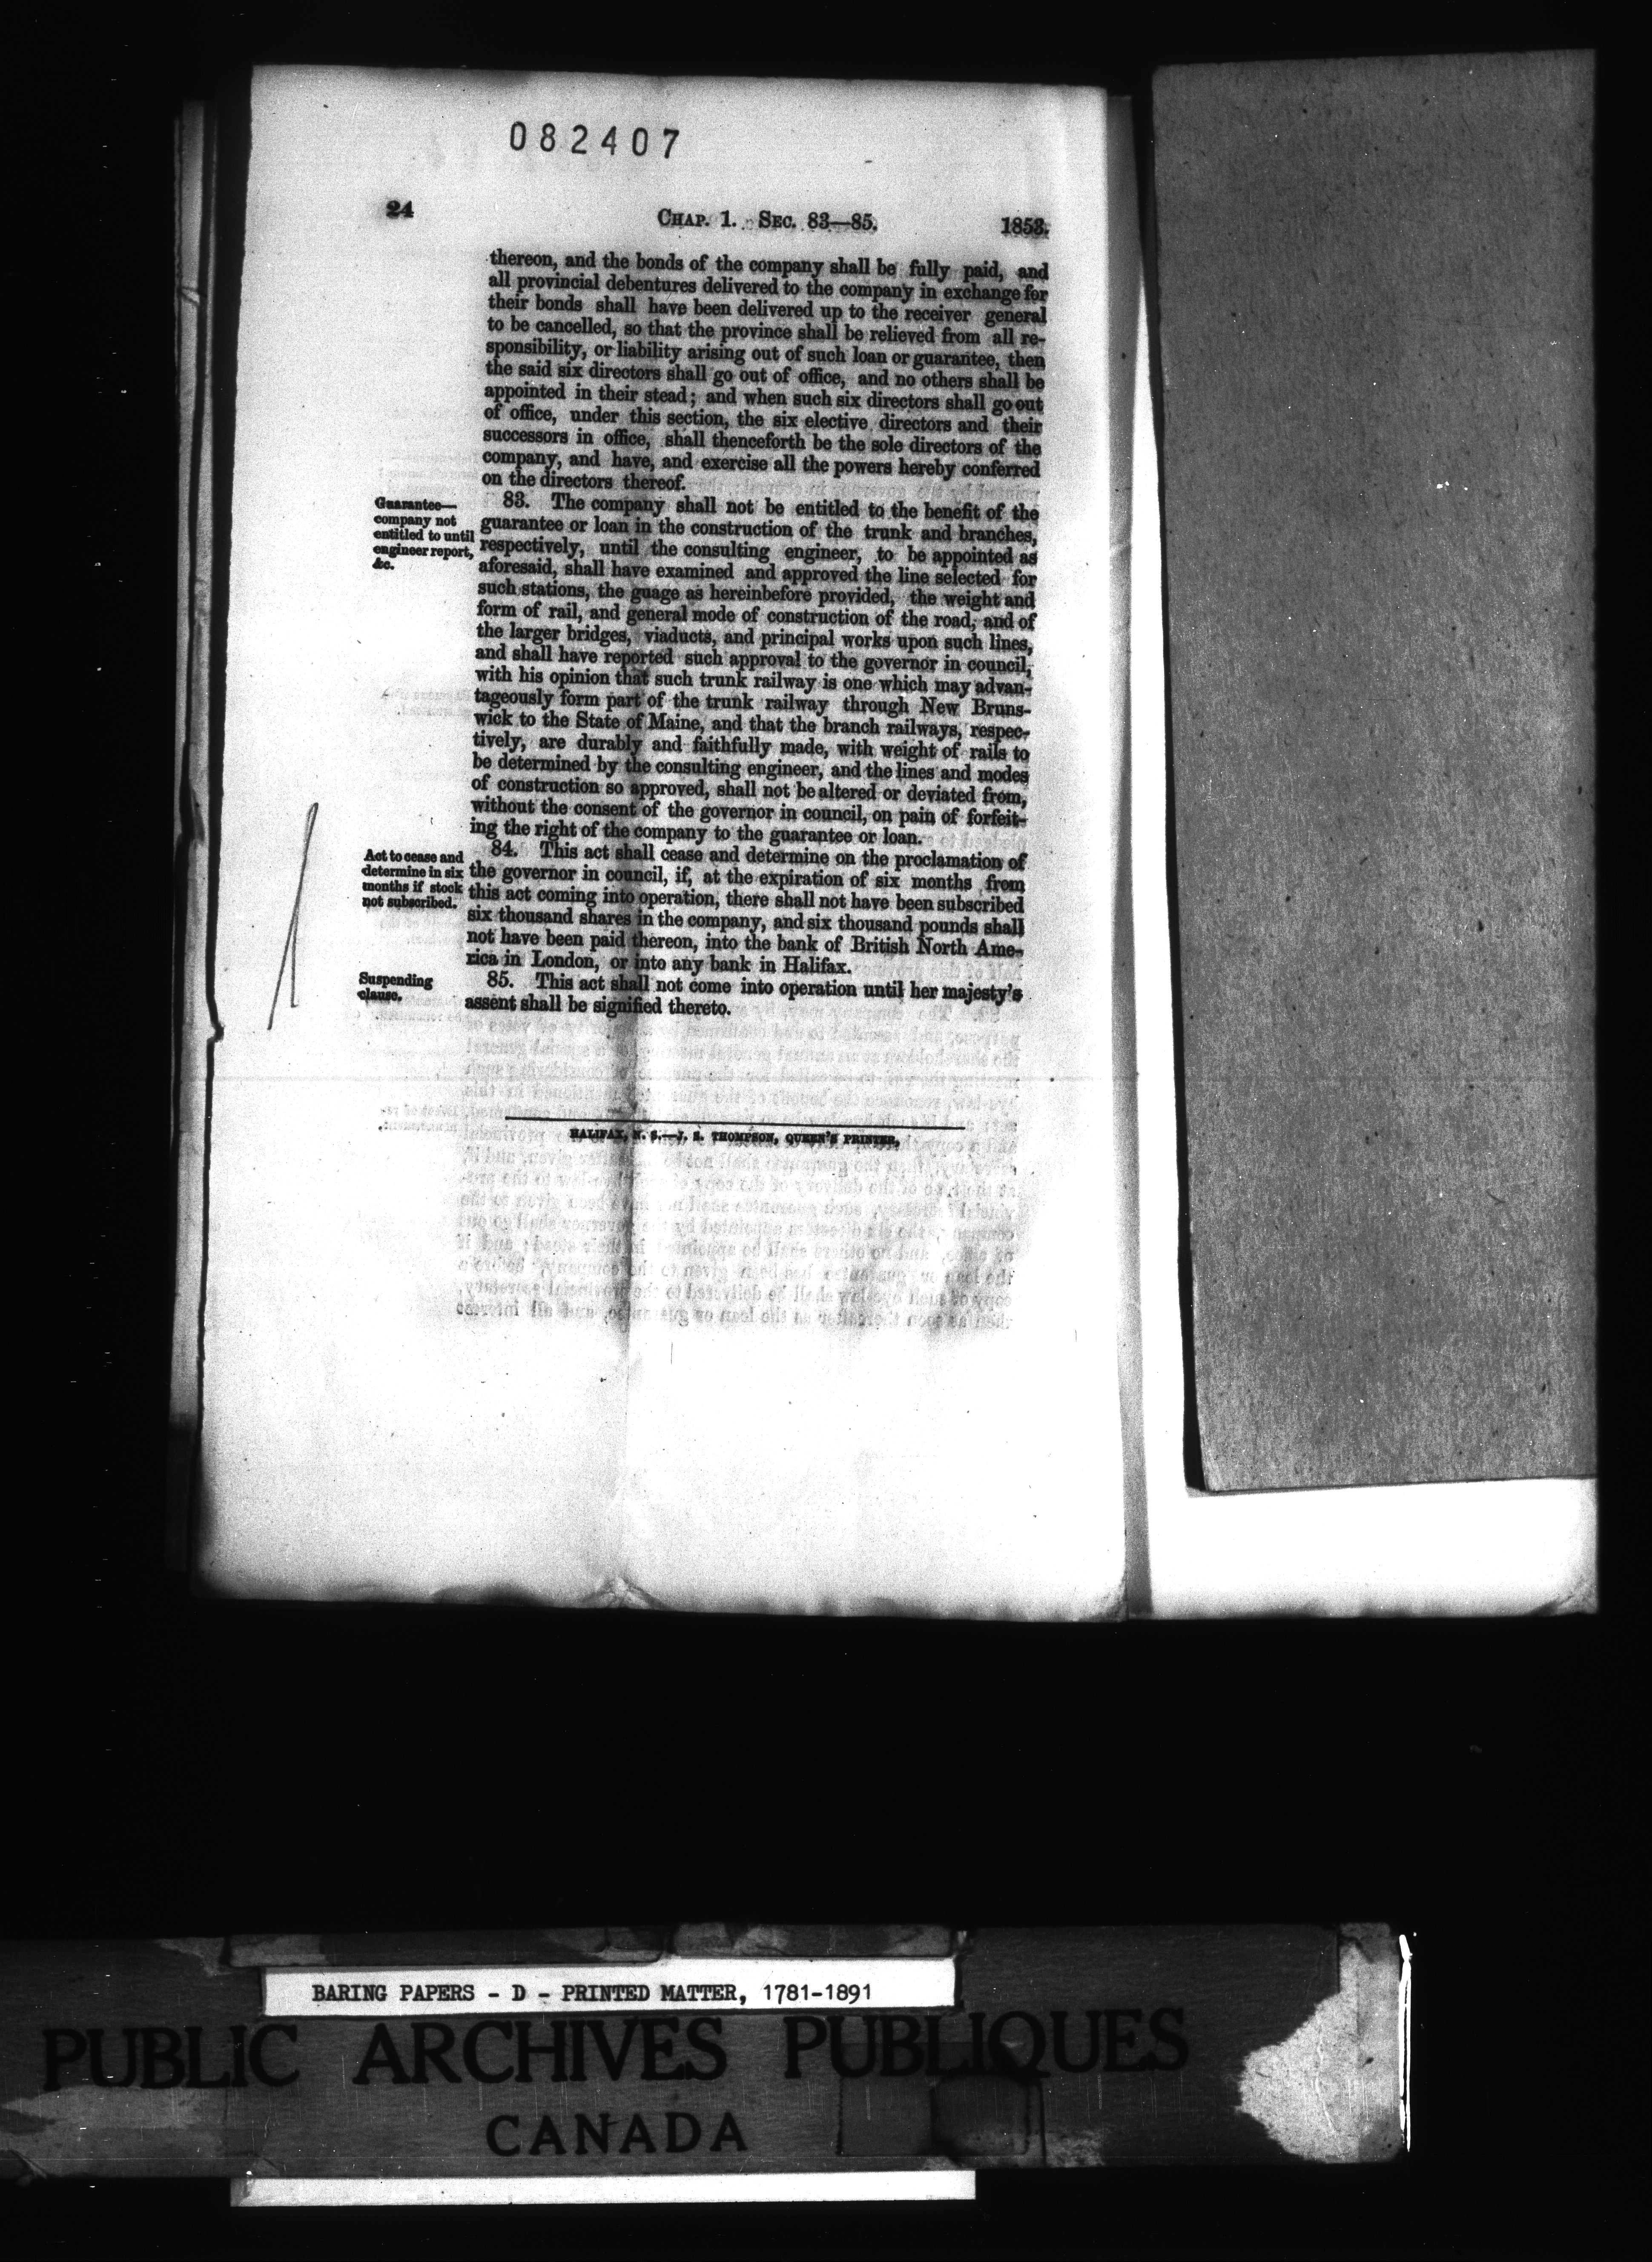 082407
24 CHAP. 1. SEC. 83—85. 1853.
thereon, and the bonds of the company shall be fully paid, and
all provincial debentures delivered to the company in exchange for
their bonds shall have been delivered up to the receiver general
to be cancelled, so that the province shall be relieved from all re-
sponsibility, or liability arising out of such loan or guarantee, then
the said six directors shall go out of office, and no others shall be
appointed in their stead; and when such six directors shall go out
of office, under this section, the six elective directors and their
successors in office, shall thenceforth be the sole directors of the
company, and have, and exercise all the powers hereby conferred
on the directors thereof.
Guarantee—
company not
entitled to until
engineer report,
&c.
83. The company shall not be entitled to the benefit of the
guarantee or loan in the construction of the trunk and branches,
respectively, until the consulting engineer, to be appointed as
aforesaid, shall have examined and approved the line selected for
such stations, the guage as hereinbefore provided, the weight and
form of rail, and general mode of construction of the road, and of
the larger bridges, viaducts, and principal works upon such lines,
and shall have reported such approval to the governor in council,
with his opinion that such trunk railway is one which may advan-
tageously form part of the trunk railway through New Bruns-
wick to the State of Maine, and that the branch railways, respec-
tively, are durably and faithfully made, with weight of rails to
be determined by the consulting engineer, and the lines and modes
of construction so approved, shall not be altered or deviated from,
without the consent of the governor in council, on pain of forfeit-
ing the right of the company to the guarantee or loan.
Act to cease and
determine in six
months if stock
not subscribed.
84. This act shall cease and determine on the proclamation of
the governor in council, if, at the expiration of six months from
this act coming into operation, there shall not have been subscribed
six thousand shares in the company, and six thousand pounds shall
not have been paid thereon, into the bank of British North Ame-
rica in London, or into any bank in Halifax.
Suspending
clause.
85. This act shall not come into operation until her majesty's
assent shall be signified thereto.
HALIFAX, N. S.—J. S. THOMPSON, QUEEN'S PRINTER.
BARING PAPERS - D - PRINTED MATTER, 1781-1891
PUBLIC ARCHIVES PUBLIQUES
CANADA